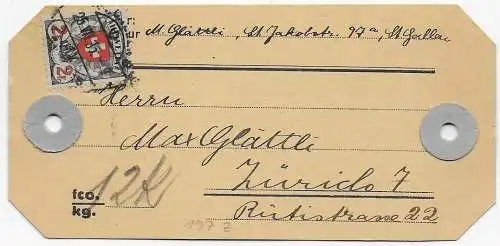 r: M. Glättli, St. Jakobstr. 97a, St. Gallen
ur
Herrn
Max Glättli
Zürich 7
Rütistrasse 22
fco.
kg.
12k
197 z
2 2